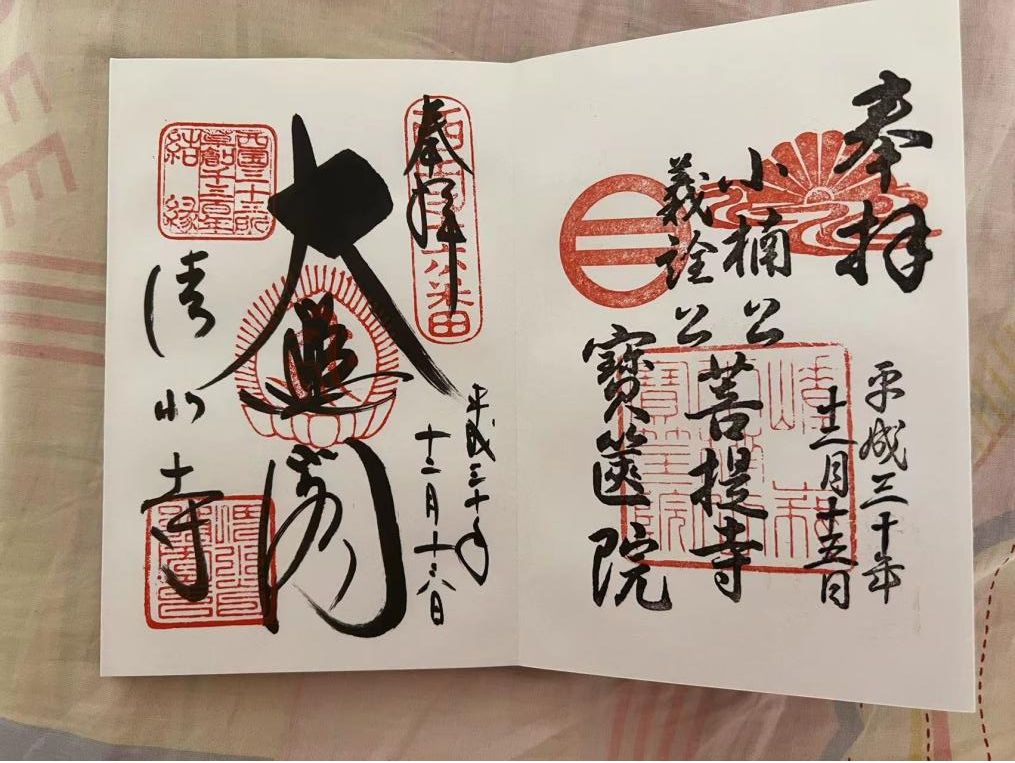 奉拝
平成三十年
十二月十五日
小楠公
義詮公
菩提寺
寳篋院
奉拝
平成三十年
大悲閣
西国三十三所
草創千三百年
結縁
清水寺